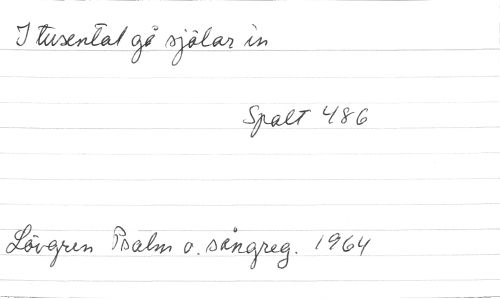 I tusental gå själar in
Spalt 486
Lövgren Psalm o. sångreg. 1964